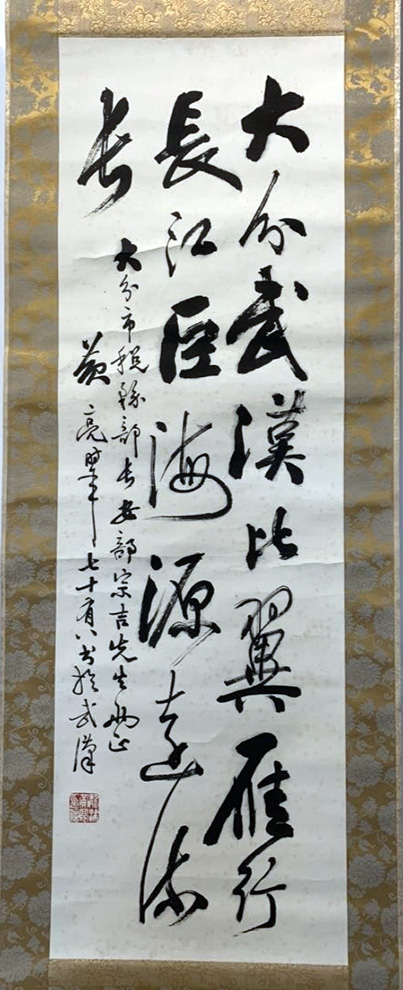 大分武漢比翼雁行
長江巨海源遠流
长
大分市税務部长安部宗吉先生两正
黄亮 時年七十有八书於武漢